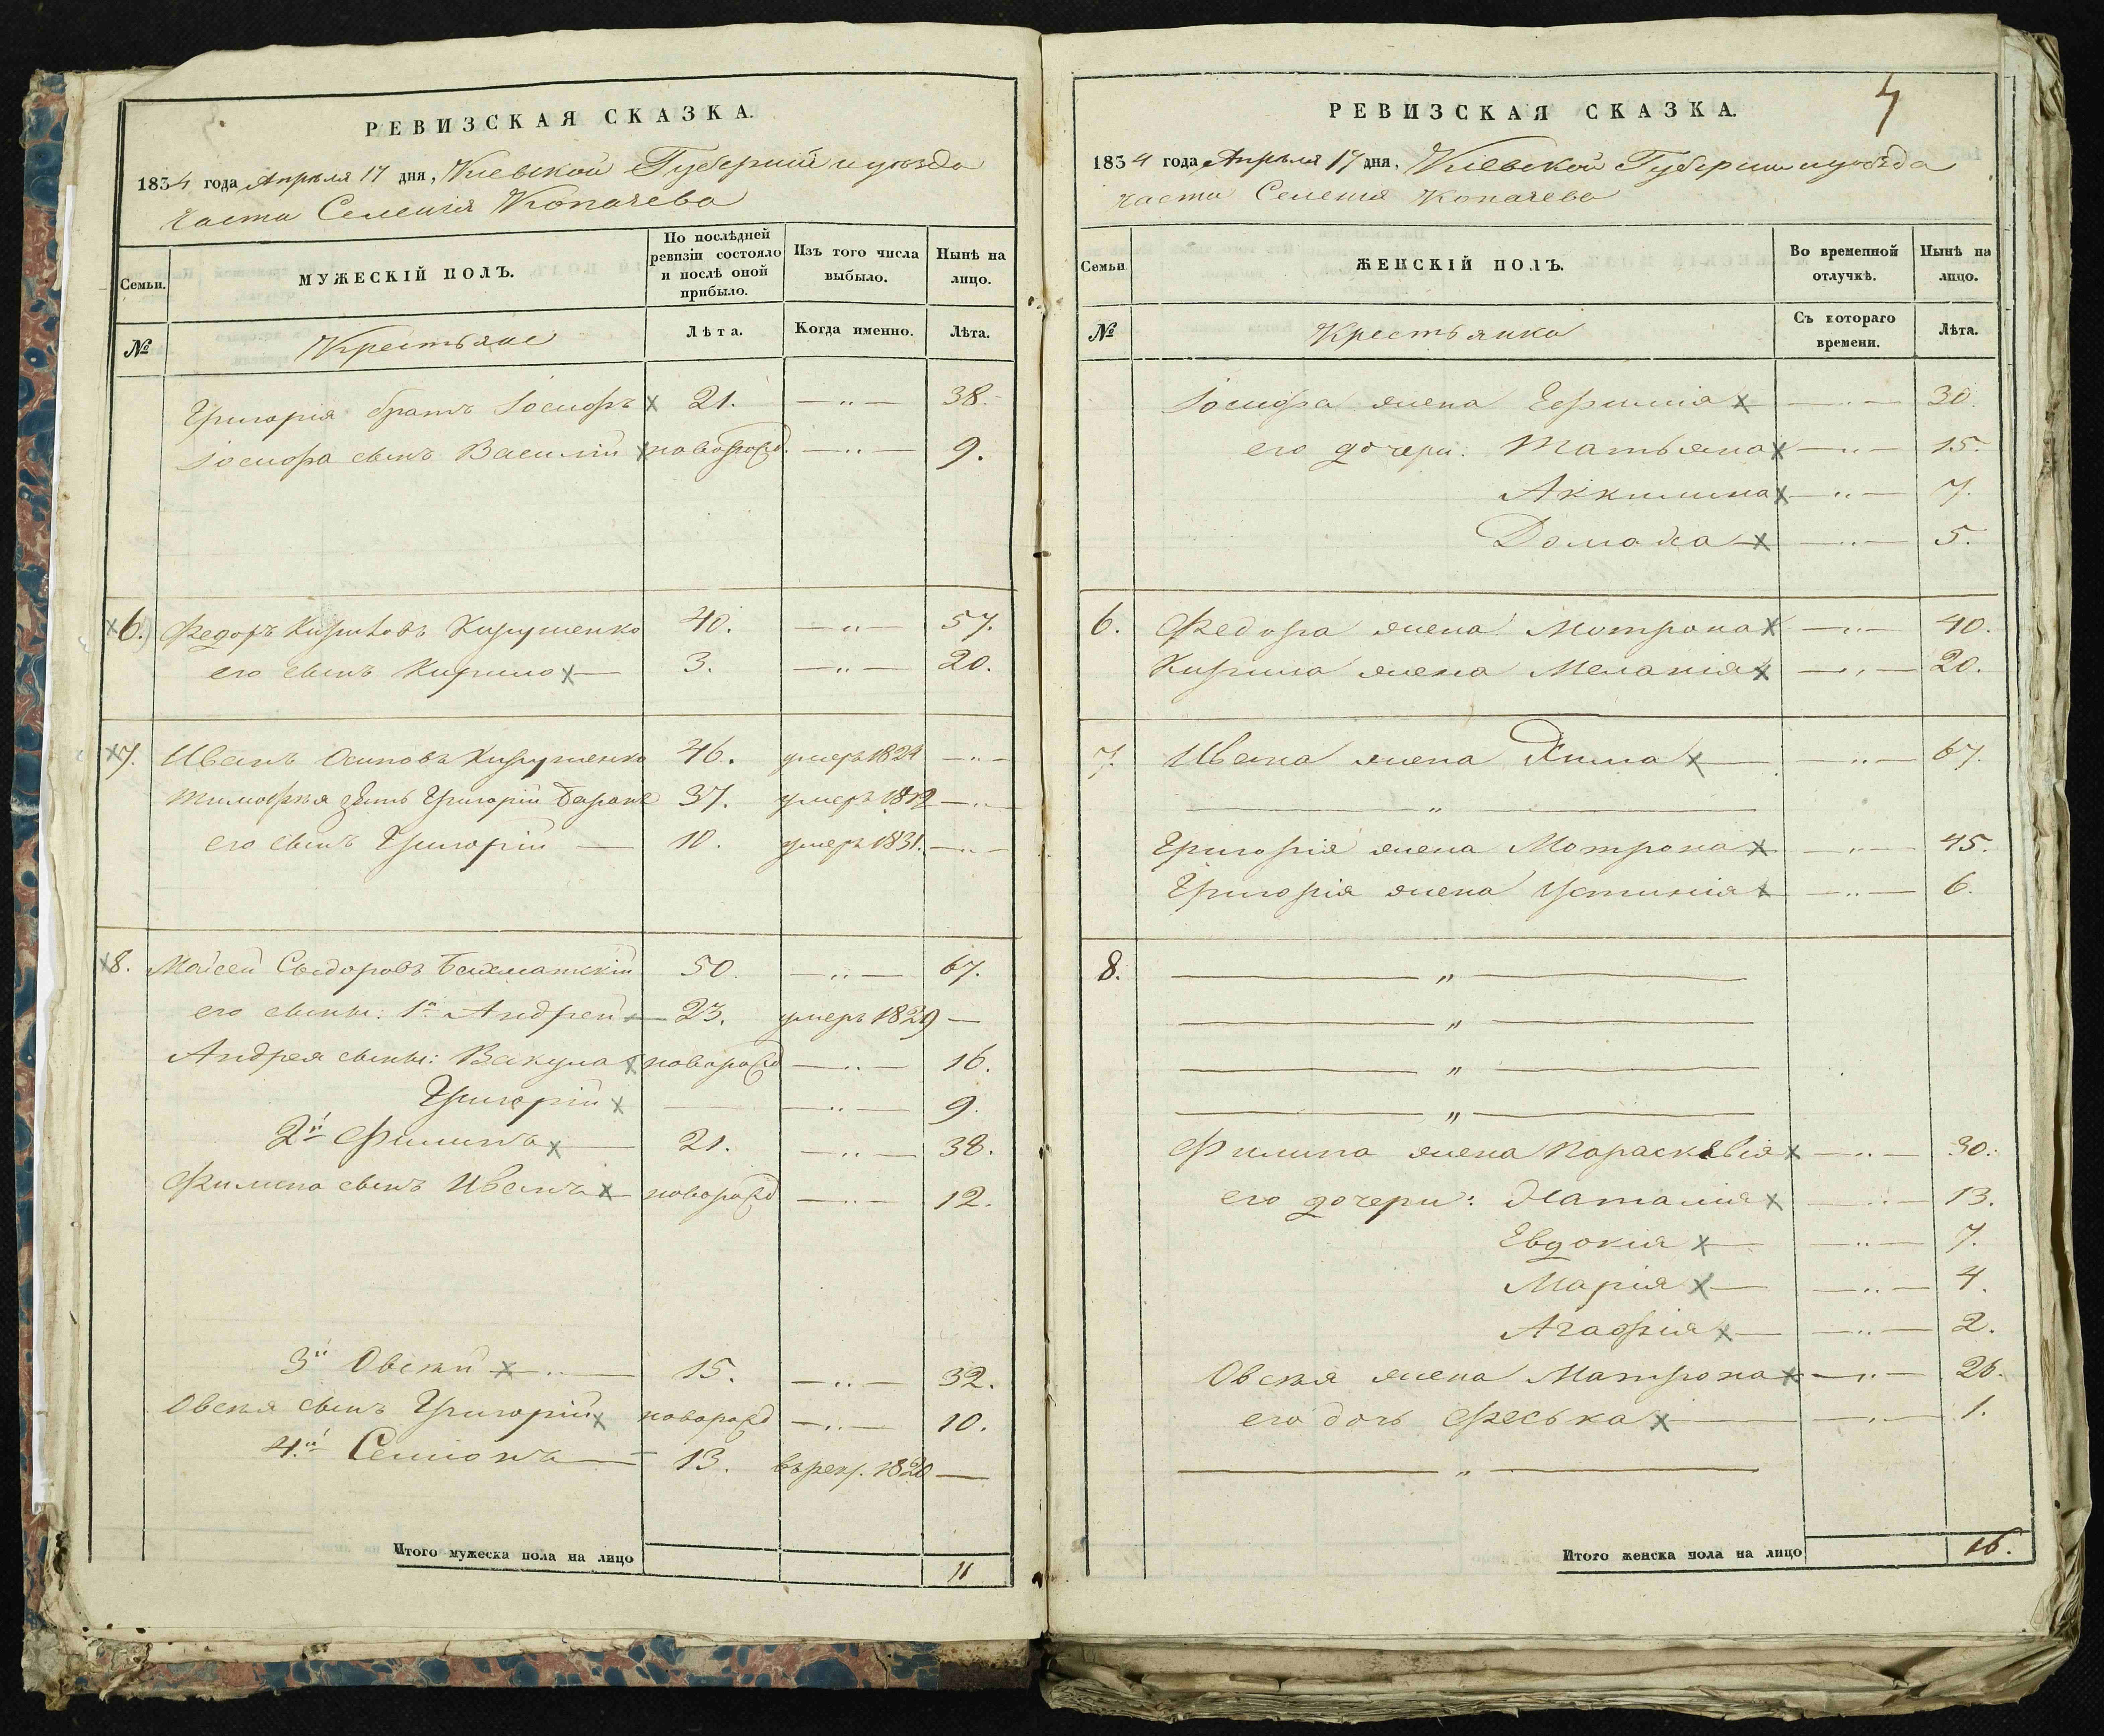 РЕВИЗСКАЯ СКАЗКА.
1834 года Апрѣля 17 дня, Кіевской Губерніи и уѣзда
части Селенія Копачева
Семьи.
МУЖЕСКІЙ ПОЛЪ.
По послѣдней ревизіи состояло и послѣ оной прибыло.
Изъ того числа выбыло.
Нынѣ на лицо.
№
Крестьяне
Лѣта.
Когда именно.
Лѣта.
Григорія братъ Іосифъ х 21. —„— 38.
Іосифа сынъ Василій х новорожд. —„— 9.
х 6. Федоръ Кириловъ Кирушенко 40. —„— 57.
его сынъ Кирило х — 3. —„— 20.
х 7. Иванъ Осиповъ Кирушенко 46. умеръ 1824 —„—
Тимофея зять Григорій 37. умеръ —„—
его сынъ Григорій — 10. умеръ 1831. —„—
х 8. Моисей Сыдоровъ Бахматскій 50. —„— 67.
его сыны: 1й Андрей — 23. умеръ 1829 —
Андрея сыны: Вакула х новорожд —„— 16.
Григорій х — —„— 9.
2й Филипъ х — 21. —„— 38.
Филипа сынъ Иванъ х — новорожд —„— 12.
3й Овсѣй х —„— 15. —„— 32.
Овсѣя сынъ Григорій х новорожд —„— 10.
4й Семіонъ — 13. въ рекр. 1820 —
Итого мужеска пола на лицо 11
РЕВИЗСКАЯ СКАЗКА.
4
1834 года Апрѣля 17 дня, Кіевской Губерніи и уѣзда
части Селенія Копачева
Семьи
ЖЕНСКІЙ ПОЛЪ.
Во временной отлучкѣ.
Нынѣ на лицо.
№
Крестьянки
Съ котораго времени.
Лѣта.
Іосифа жена Ефимія х —„— 30.
его дочери: Татьяна х —„— 15.
Аккилина х —„— 7.
Домаха х —„— 5.
6. Федора жена Мотрона х —„— 40.
Кирила жена Меланія х —„— 20.
7. Ивана жена Хима х —„— 67.
—„—
Григорія жена Мотрона х —„— 45.
Григорія жена Устинія х —„— 6.
8. —„—
—„—
—„—
—„—
Филипа жена Параскевія х —„— 30.
его дочери: Наталія х —„— 13.
Евдокія х —„— 7.
Марія х —„— 4.
Агафія х —„— 2.
Овсѣя жена Матрона х —„— 26.
его дочь Феська х —„— 1.
—„—
Итого женска пола на лицо 16.